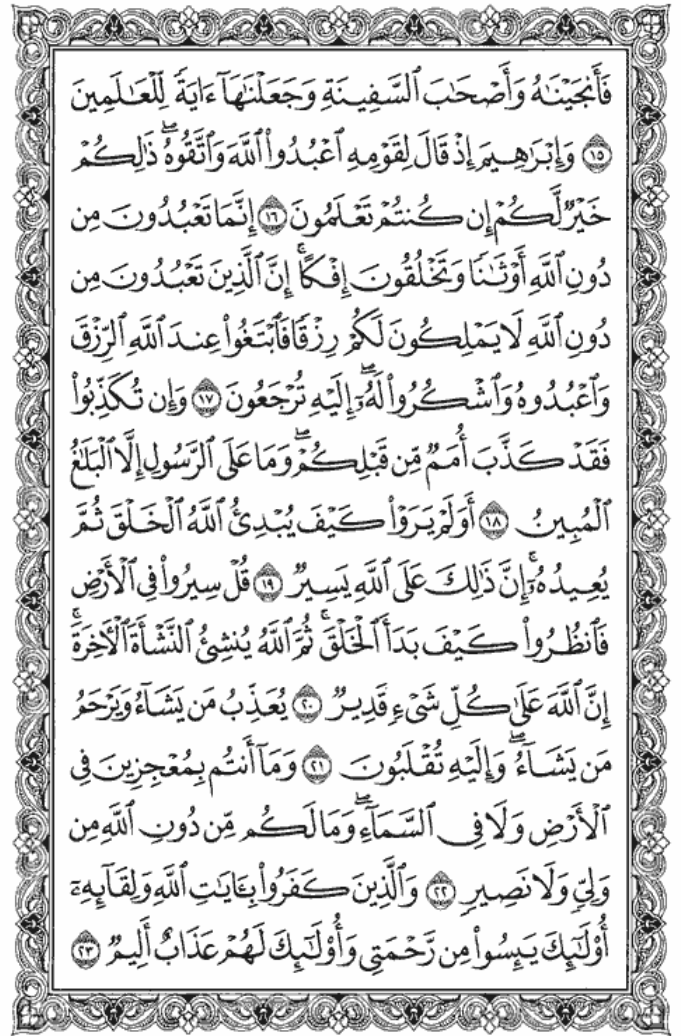 فَأَنجَيْنَٰهُ وَأَصْحَٰبَ ٱلسَّفِينَةِ وَجَعَلْنَٰهَآ ءَايَةً لِّلْعَٰلَمِينَ
١٥ وَإِبْرَٰهِيمَ إِذْ قَالَ لِقَوْمِهِ ٱعْبُدُوا۟ ٱللَّهَ وَٱتَّقُوهُ ۖ ذَٰلِكُمْ
خَيْرٌ لَّكُمْ إِن كُنتُمْ تَعْلَمُونَ ١٦ إِنَّمَا تَعْبُدُونَ مِن
دُونِ ٱللَّهِ أَوْثَٰنًا وَتَخْلُقُونَ إِفْكًا ۚ إِنَّ ٱلَّذِينَ تَعْبُدُونَ مِن
دُونِ ٱللَّهِ لَا يَمْلِكُونَ لَكُمْ رِزْقًا فَٱبْتَغُوا۟ عِندَ ٱللَّهِ ٱلرِّزْقَ
وَٱعْبُدُوهُ وَٱشْكُرُوا۟ لَهُۥٓ ۖ إِلَيْهِ تُرْجَعُونَ ١٧ وَإِن تُكَذِّبُوا۟
فَقَدْ كَذَّبَ أُمَمٌ مِّن قَبْلِكُمْ ۖ وَمَا عَلَى ٱلرَّسُولِ إِلَّا ٱلْبَلَٰغُ
ٱلْمُبِينُ ١٨ أَوَلَمْ يَرَوْا۟ كَيْفَ يُبْدِئُ ٱللَّهُ ٱلْخَلْقَ ثُمَّ
يُعِيدُهُۥٓ ۚ إِنَّ ذَٰلِكَ عَلَى ٱللَّهِ يَسِيرٌ ١٩ قُلْ سِيرُوا۟ فِى ٱلْأَرْضِ
فَٱنظُرُوا۟ كَيْفَ بَدَأَ ٱلْخَلْقَ ۚ ثُمَّ ٱللَّهُ يُنشِئُ ٱلنَّشْأَةَ ٱلْأَخِرَةَ ۚ
إِنَّ ٱللَّهَ عَلَىٰ كُلِّ شَىْءٍ قَدِيرٌ ٢٠ يُعَذِّبُ مَن يَشَآءُ وَيَرْحَمُ
مَن يَشَآءُ ۖ وَإِلَيْهِ تُقْلَبُونَ ٢١ وَمَآ أَنتُم بِمُعْجِزِينَ فِى
ٱلْأَرْضِ وَلَا فِى ٱلسَّمَآءِ ۖ وَمَا لَكُم مِّن دُونِ ٱللَّهِ مِن
وَلِىٍّ وَلَا نَصِيرٍ ٢٢ وَٱلَّذِينَ كَفَرُوا۟ بِـَٔايَٰتِ ٱللَّهِ وَلِقَآئِهِۦٓ
أُو۟لَٰٓئِكَ يَئِسُوا۟ مِن رَّحْمَتِى وَأُو۟لَٰٓئِكَ لَهُمْ عَذَابٌ أَلِيمٌ ٢٣